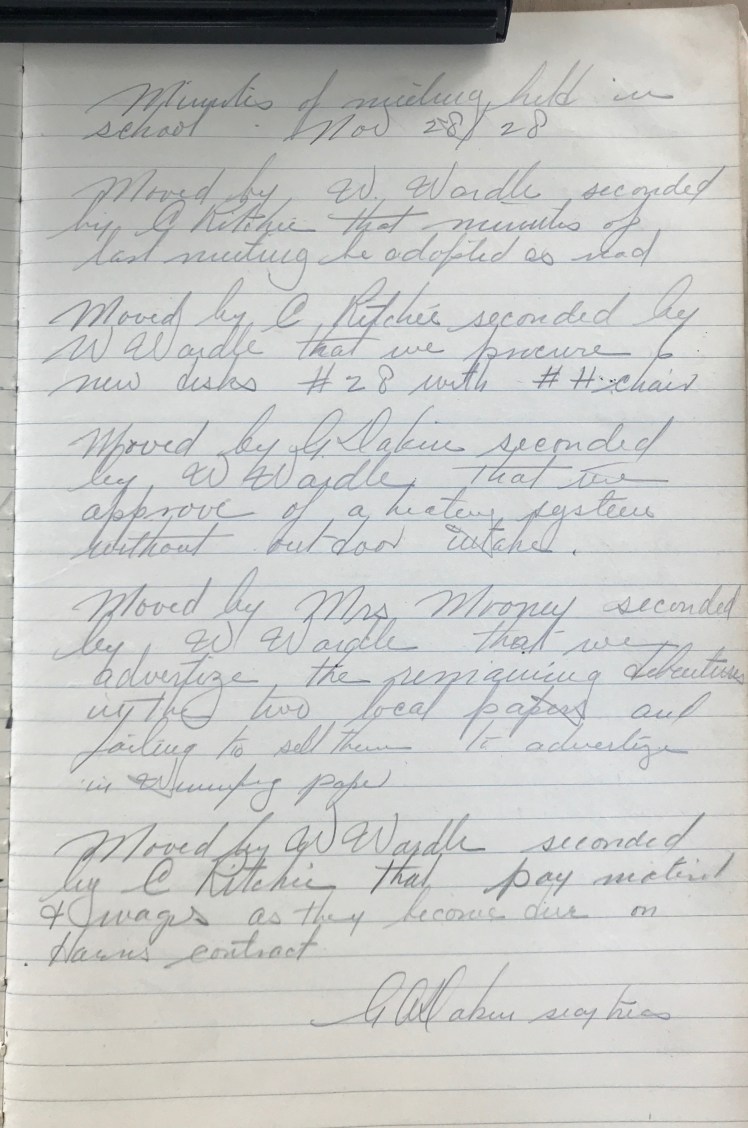 Minutes of meeting held in
school . Nov 28/28
Moved by W. Wardle seconded
by C Ritchie that minutes of
last meeting be adopted as read
Moved by C Ritchie seconded by
W Wardle that we procure 6
new desks #28 with ## chair
Moved by G. Dakin seconded
by W Wardle that we
approve of a heating system
without outdoor intake.
Moved by Mrs Mooney seconded
by W Wardle that we
advertize the remaining debentures
in the two local papers and
failing to sell them to advertize
in Winnipeg paper
Moved by W Wardle seconded
by C Ritchie that pay material
& wages as they become due on
contract
G A Dakin secy treas